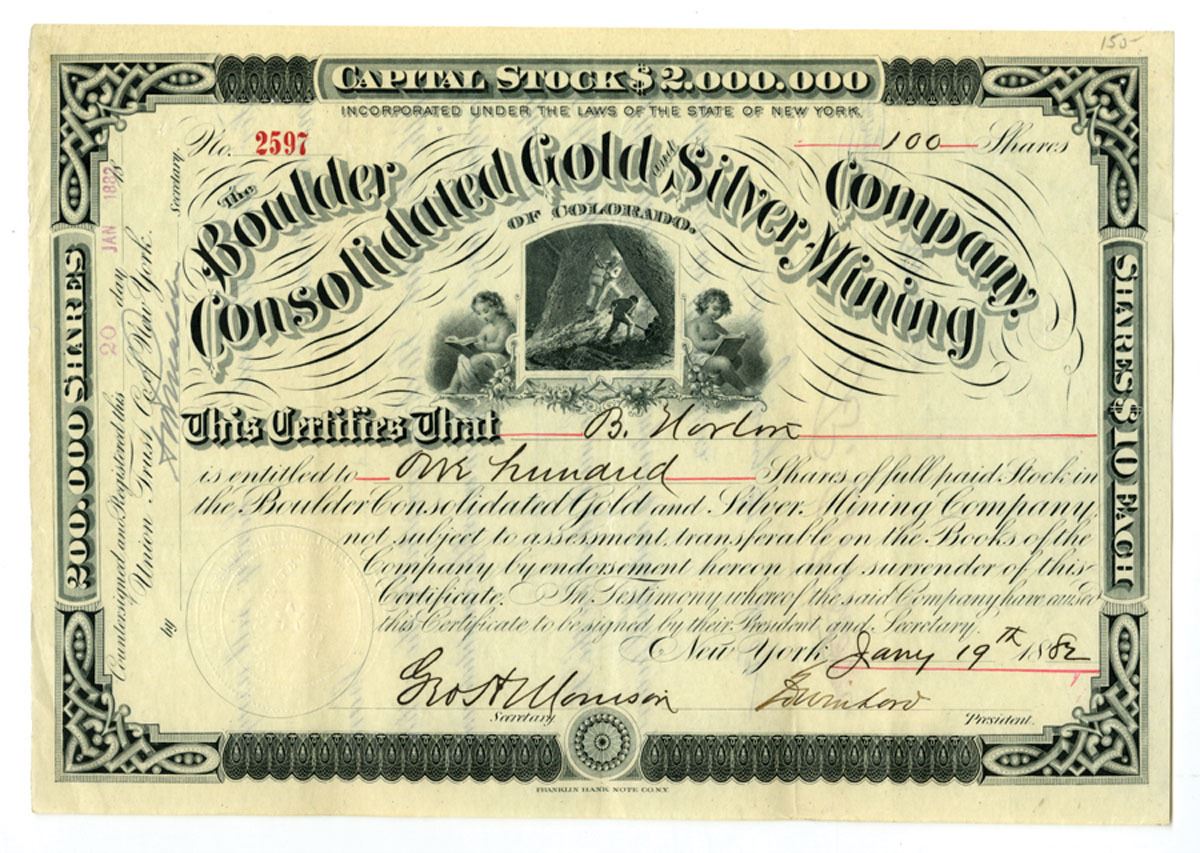 150-
CAPITAL STOCK $2.000.000
INCORPORATED UNDER THE LAWS OF THE STATE OF NEW YORK.
No. 2597
100 Shares
The Boulder
Consolidated Gold and Silver Mining
Company
OF COLORADO.
This Certifies That B. Horton
is entitled to One hundred Shares of full paid Stock in
the Boulder Consolidated Gold and Silver Mining Company,
not subject to assessment, transferable on the Books of the
Company by endorsement hereon and surrender of this
Certificate. In Testimony whereof the said Company have caused
this Certificate to be signed by their President and Secretary.
New York Jany 19th 1882
Geo H Morrison
Secretary
President.
FRANKLIN BANK NOTE CO. N.Y.
200.000 SHARES
Countersigned and Registered this 20 day JAN 1882
Union Trust Co. of New York.
by Secretary.
SHARES $10 EACH